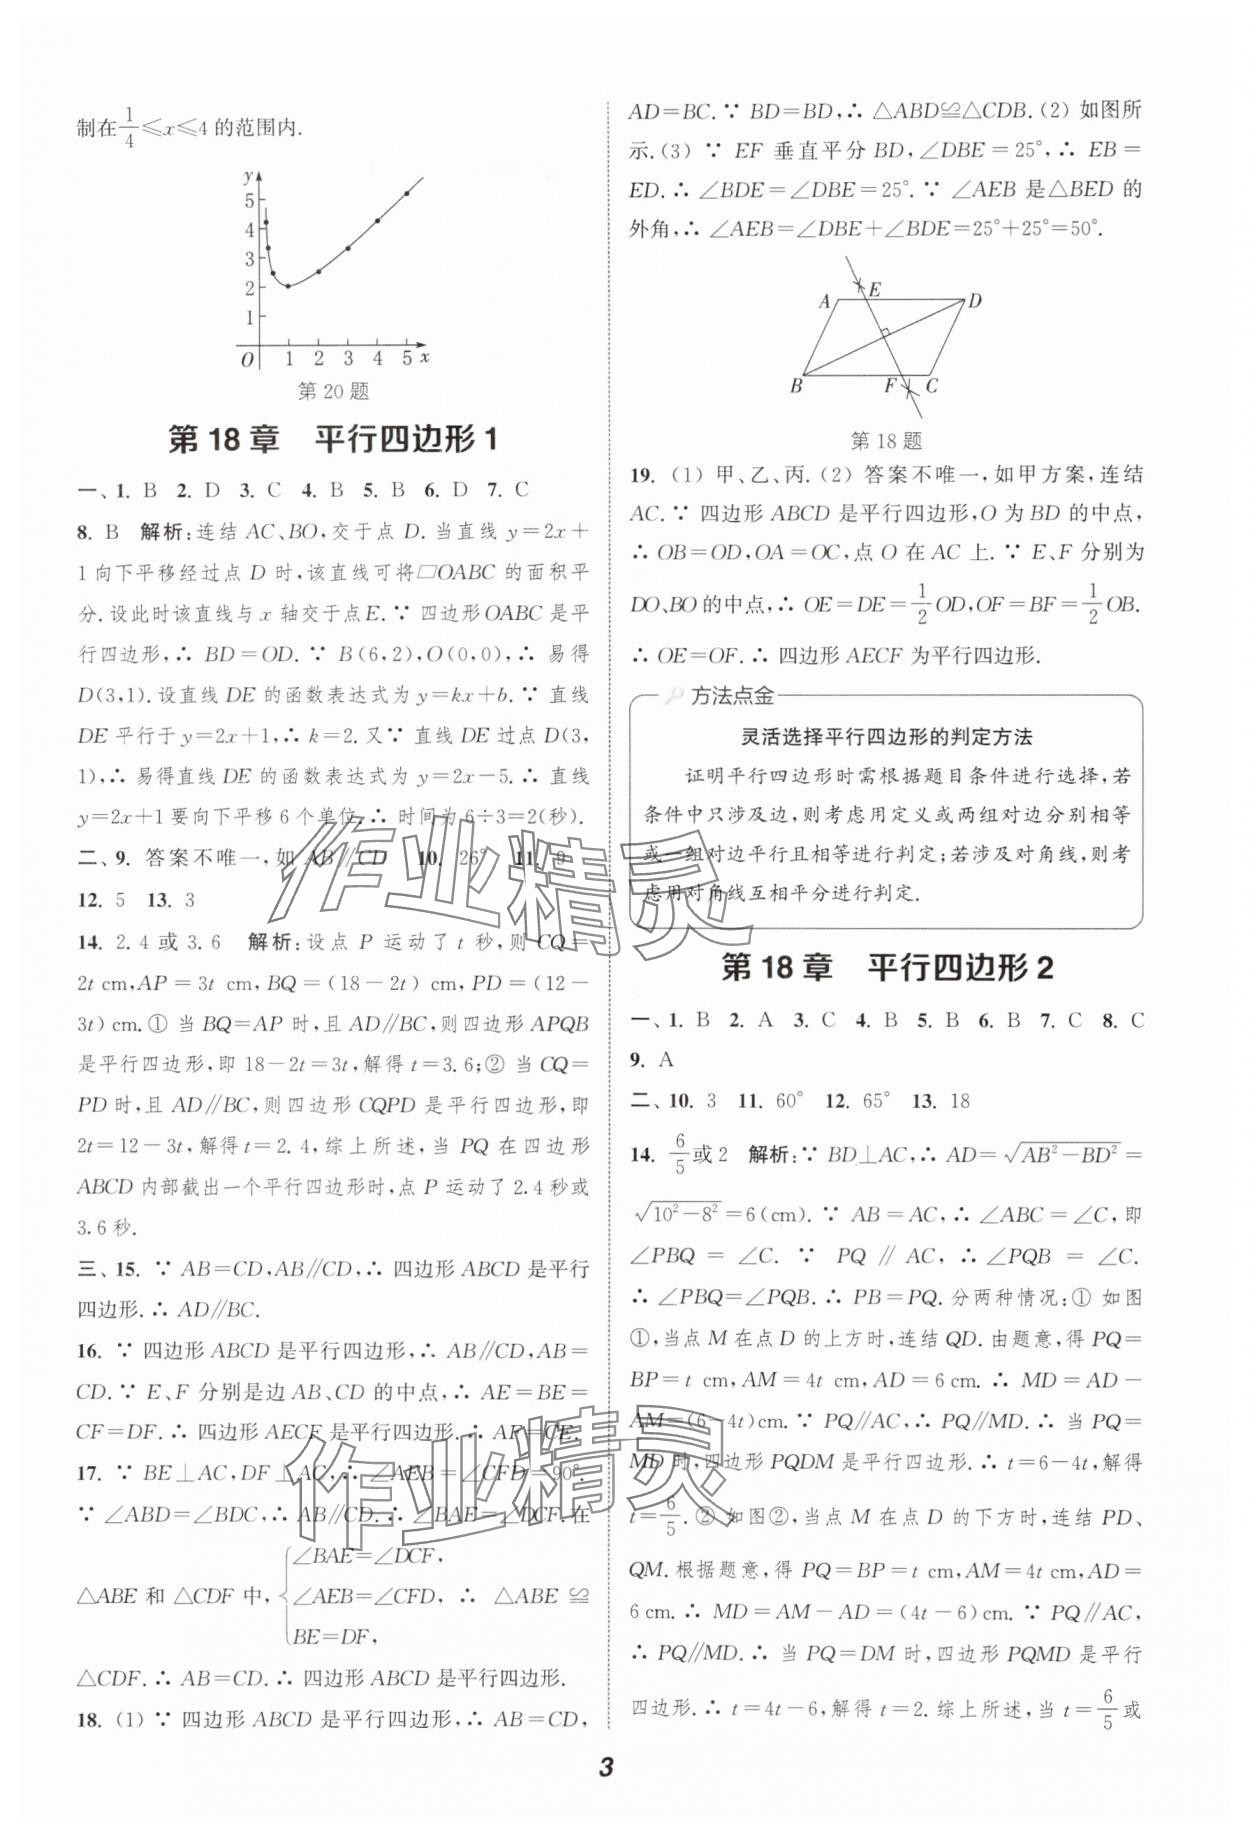 制在1/4≤x≤4的范围内.
y
5
4
3
2
1
O 1 2 3 4 5 x
第20题
第18章 平行四边形1
一、1. B 2. D 3. C 4. B 5. B 6. D 7. C
8. B 解析:连结AC、BO,交于点D.当直线y=2x+
1向下平移经过点D时,该直线可将▱OABC的面积平
分.设此时该直线与x轴交于点E.∵ 四边形OABC是平
行四边形,∴ BD=OD.∵ B(6,2),O(0,0),∴ 易得
D(3,1).设直线DE的函数表达式为y=kx+b.∵ 直线
DE平行于y=2x+1,∴ k=2.又∵ 直线DE过点D(3,
1),∴ 易得直线DE的函数表达式为y=2x-5.∴ 直线
y=2x+1要向下平移6个单位.∴ 时间为6÷3=2(秒).
二、9. 答案不唯一,如AB∥CD 10. 26° 11. 9
12. 5 13. 3
14. 2.4或3.6 解析:设点P运动了t秒,则CQ=
2t cm,AP=3t cm,BQ=(18-2t)cm,PD=(12-
3t)cm.① 当BQ=AP时,且AD∥BC,则四边形APQB
是平行四边形,即18-2t=3t,解得t=3.6;② 当CQ=
PD时,且AD∥BC,则四边形CQPD是平行四边形,即
2t=12-3t,解得t=2.4,综上所述,当PQ在四边形
ABCD内部截出一个平行四边形时,点P运动了2.4秒或
3.6秒.
三、15. ∵ AB=CD,AB∥CD,∴ 四边形ABCD是平行
四边形.∴ AD∥BC.
16. ∵ 四边形ABCD是平行四边形,∴ AB∥CD,AB=
CD.∵ E、F分别是边AB、CD的中点,∴ AE=BE=
CF=DF.∴ 四边形AECF是平行四边形.∴ AF=CE.
17. ∵ BE⊥AC,DF⊥AC,∴ ∠AEB=∠CFD=90°.
∵ ∠ABD=∠BDC,∴ AB∥CD.∴ ∠BAE=∠DCF.在
△ABE和△CDF中,{∠BAE=∠DCF,
∠AEB=∠CFD, ∴ △ABE≌
BE=DF,
△CDF.∴ AB=CD.∴ 四边形ABCD是平行四边形.
18. (1) ∵ 四边形ABCD是平行四边形,∴ AB=CD,
AD=BC.∵ BD=BD,∴ △ABD≌△CDB.(2) 如图所
示.(3) ∵ EF垂直平分BD,∠DBE=25°,∴ EB=
ED.∴ ∠BDE=∠DBE=25°.∵ ∠AEB是△BED的
外角,∴ ∠AEB=∠DBE+∠BDE=25°+25°=50°.
A E D
B F C
第18题
19. (1) 甲、乙、丙.(2) 答案不唯一,如甲方案,连结
AC.∵ 四边形ABCD是平行四边形,O为BD的中点,
∴ OB=OD,OA=OC,点O在AC上.∵ E、F分别为
DO、BO的中点,∴ OE=DE=1/2OD,OF=BF=1/2OB.
∴ OE=OF.∴ 四边形AECF为平行四边形.
方法点金
灵活选择平行四边形的判定方法
证明平行四边形时需根据题目条件进行选择,若
条件中只涉及边,则考虑用定义或两组对边分别相等
或一组对边平行且相等进行判定;若涉及对角线,则考
虑用对角线互相平分进行判定.
第18章 平行四边形2
一、1. B 2. A 3. C 4. B 5. B 6. B 7. C 8. C
9. A
二、10. 3 11. 60° 12. 65° 13. 18
14. 6/5或2 解析:∵ BD⊥AC,∴ AD=√(AB²-BD²)=
√(10²-8²)=6(cm).∵ AB=AC,∴ ∠ABC=∠C,即
∠PBQ=∠C.∵ PQ∥AC,∴ ∠PQB=∠C.
∴ ∠PBQ=∠PQB.∴ PB=PQ.分两种情况:① 如图
①,当点M在点D的上方时,连结QD.由题意,得PQ=
BP=t cm,AM=4t cm,AD=6 cm.∴ MD=AD-
AM=(6-4t)cm.∵ PQ∥AC,∴ PQ∥MD.∴ 当PQ=
MD时,四边形PQDM是平行四边形.∴ t=6-4t,解得
t=6/5.② 如图②,当点M在点D的下方时,连结PD、
QM.根据题意,得PQ=BP=t cm,AM=4t cm,AD=
6 cm.∴ MD=AM-AD=(4t-6)cm.∵ PQ∥AC,
∴ PQ∥MD.∴ 当PQ=DM时,四边形PQMD是平行
四边形.∴ t=4t-6,解得t=2.综上所述,当t=6/5或
3
作业精灵
作业精灵